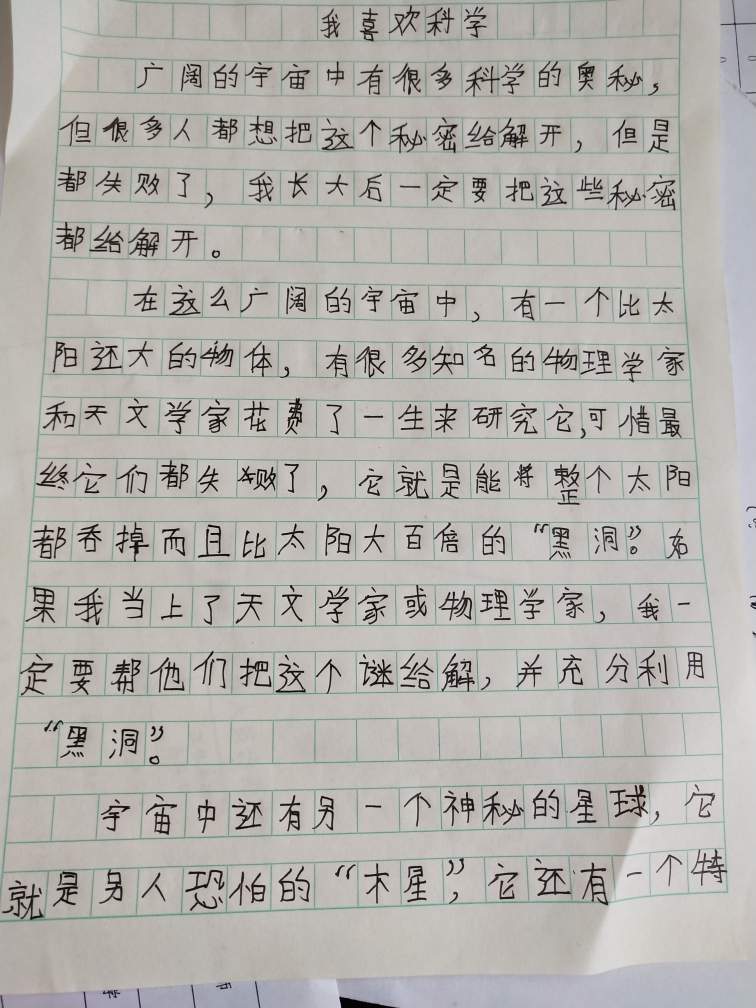 我喜欢科学
广阔的宇宙中有很多科学的奥秘，
但很多人都想把这个秘密给解开，但是
都失败了，我长大后一定要把这些秘密
都给解开。
在这么广阔的宇宙中，有一个比太
阳还大的物体，有很多知名的物理学家
和天文学家花费了一生来研究它，可惜最
终它们都失败了，它就是能将整个太阳
都吞掉而且比太阳大百倍的“黑洞”。如
果我当上了天文学家或物理学家，我一
定要帮他们把这个谜给解，并充分利用
“黑洞”。
宇宙中还有另一个神秘的星球，它
就是另人恐怕的“木星”，它还有一个特